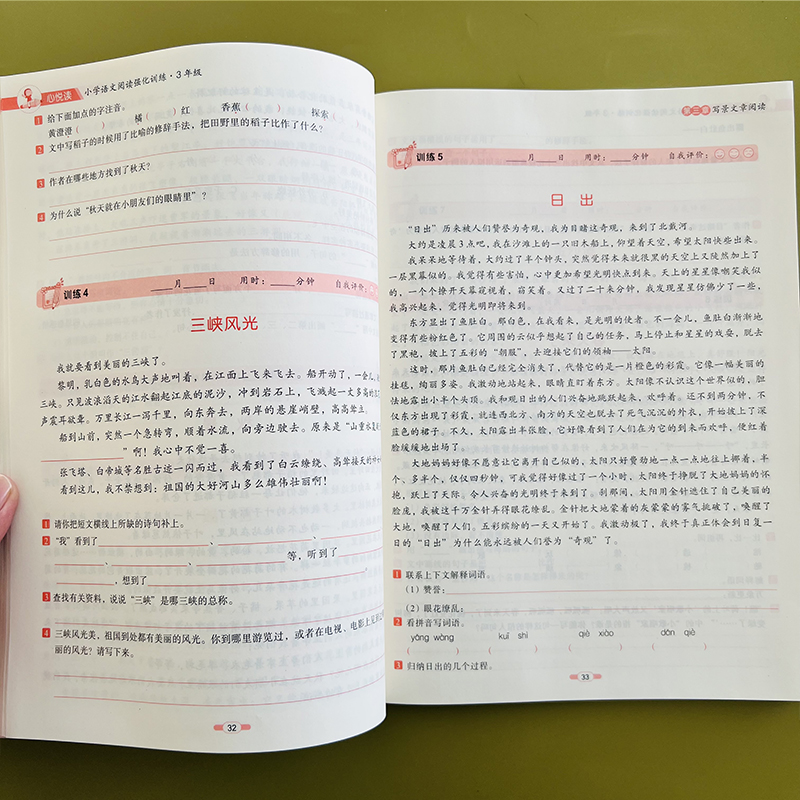 心悦读 小学语文阅读强化训练·3年级
1 给下面加点的字注音。
黄澄澄( ) 橘( )红 香蕉( ) 探索(
2 文中写稻子的时候用了比喻的修辞手法，把田野里的稻子比作了什么?
3 作者在哪些地方找到了秋天?
4 为什么说“秋天就在小朋友们的眼睛里”?
训练4 ____月____日 用时:____分钟 自我评价:
三峡风光
我就要看到美丽的三峡了。
黎明，乳白色的水鸟大声地叫着，在江面上飞来飞去。船开动了，一会儿，
三峡。只见波浪滔天的江水翻起江底的泥沙，冲到岩石上，飞溅起一丈多高的
声震耳欲聋。万里长江一泻千里，向东奔去，两岸的悬崖峭壁，高高耸立。
船到山前，突然一个急转弯，顺着水流，向旁边驶去。原来是“山重水复
________”啊！我心中不觉一喜。
张飞塔、白帝城等名胜古迹一闪而过，我看到了白云缭绕、高耸接天的神
看到这儿，我不禁想到：祖国的大好河山多么雄伟壮丽啊！
1 请你把短文横线上所缺的诗句补上。
2 “我”看到了________、________、
________、________、________等，听到了________
________，想到了________。
3 查找有关资料，说说“三峡”是哪三峡的总称。
4 三峡风光美，祖国到处都有美丽的风光。你到哪里游览过，或者在电视、电影上见
丽的风光？请写下来。
32
第三章 写景文章阅读
训练5 ____月____日 用时:____分钟 自我评价:
日 出
“日出”历来被人们赞誉为奇观，我为目睹这奇观，来到了北戴河。
大约是凌晨3点吧，我在沙滩上的一只旧木船上，仰望着天空，希望太阳快些出来。
我呆呆地等待着，大约过了半个钟头，突然觉得本来就很黑的天空上又陡然加上了
一层黑幕似的。我觉得有些害怕，心中更加希望光明快点到来。天上的星星像嘲笑我似
的，一个个撩开天幕窥视着、窃笑着。又过了二十来分钟，我发现星星仿佛少了一些，
我高兴起来，觉得光明即将来到。
东方显出了鱼肚白。那白色，在我看来，是光明的使者。不一会儿，鱼肚白渐渐地
变得有些粉红色了。它周围的云似乎想起了自己的任务，马上停止和星星的戏耍，脱去
了黑袍，披上了五彩的“朝服”，去迎接它们的领袖——太阳。
这时，那片鱼肚白已经完全消失了，代替它的是一片橙色的彩霞。它像一幅美丽的
挂毯，绚丽多姿。我激动地站起来，眼睛直盯着东方。太阳像不认识这个世界似的，胆
怯地露出小半个头顶。我和观日出的人们兴奋地跳跃起来，欢呼着。还不到两分钟，不
仅东方出现了彩霞，就连西北方、南方的天空也脱去了死气沉沉的外衣，开始披上了深
蓝色的裙子。不久，太阳露出半张脸，它好像看到了人们在为它的到来而欢呼，便红着
脸缓缓地出场了。
大地妈妈好像不愿意让它离开自己似的，太阳只好费劲地一点一点地往上挪着，半
个、多半个，仅仅四秒钟，可我觉得好像过了一个小时，太阳终于挣脱了大地妈妈的怀
抱，跃上了天际。令人兴奋的光明终于来到了。刹那间，太阳用金针遮住了自己美丽的
脸庞，我被这千万金针弄得眼花缭乱。金针把大地蒙着的灰蒙蒙的雾气挑破了，唤醒了
大地，唤醒了人们。五彩缤纷的一天又开始了。我激动极了，我终于真正体会到日复一
日的“日出”为什么能永远被人们誉为“奇观”了。
1 联系上下文解释词语。
(1) 赞誉:
(2) 眼花缭乱:
2 看拼音写词语。
yǎng wàng kuī shì qiè xiào dǎn qiè
( ) ( ) ( ) ( )
3 归纳日出的几个过程。
33